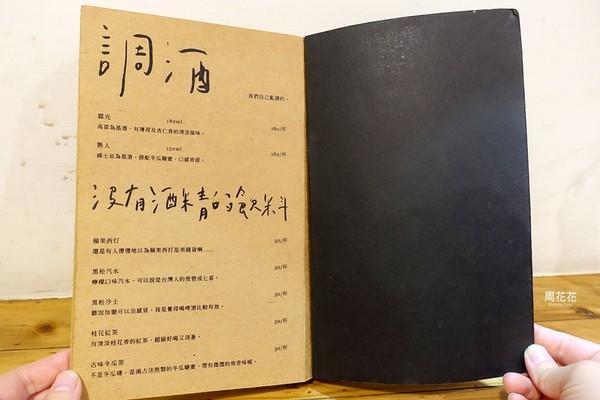 調酒
我們自己亂調的。
霧光 180ml
高粱為基酒，有薄荷及杏仁香的清涼風味。 180/杯
熟人 150ml
威士忌為基酒，搭配冬瓜糖蜜，口感香甜。 180/杯
沒有酒精的飲料
蘋果西打 50/杯
還是有人傻傻地以為蘋果西打是美國貨啊……
黑松汽水 50/杯
檸檬口味汽水，可以說是台灣人的雪碧或七喜。
黑松沙士 50/杯
聽說加鹽可以治感冒，我是覺得喝啤酒比較有效。
桂花紅茶 50/杯
有清淡桂花香的紅茶，超級好喝又消暑。
古味冬瓜茶 50/杯
不是冬瓜磚，是循古法熬製的冬瓜糖蜜，帶有微微的焦香味喔。
周花花